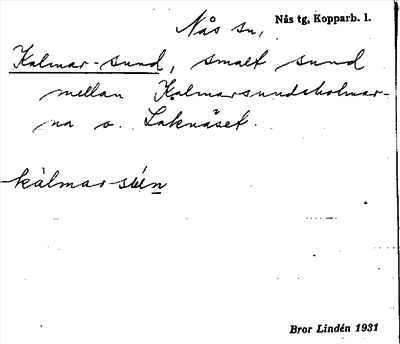 Nås sn, Nås tg, Kopparb. l.
Kalmar-sund, smalt sund
mellan Kalmarsundsholmar-
na o. Laknäset.
kàlmar-
Bror Lindén 1931